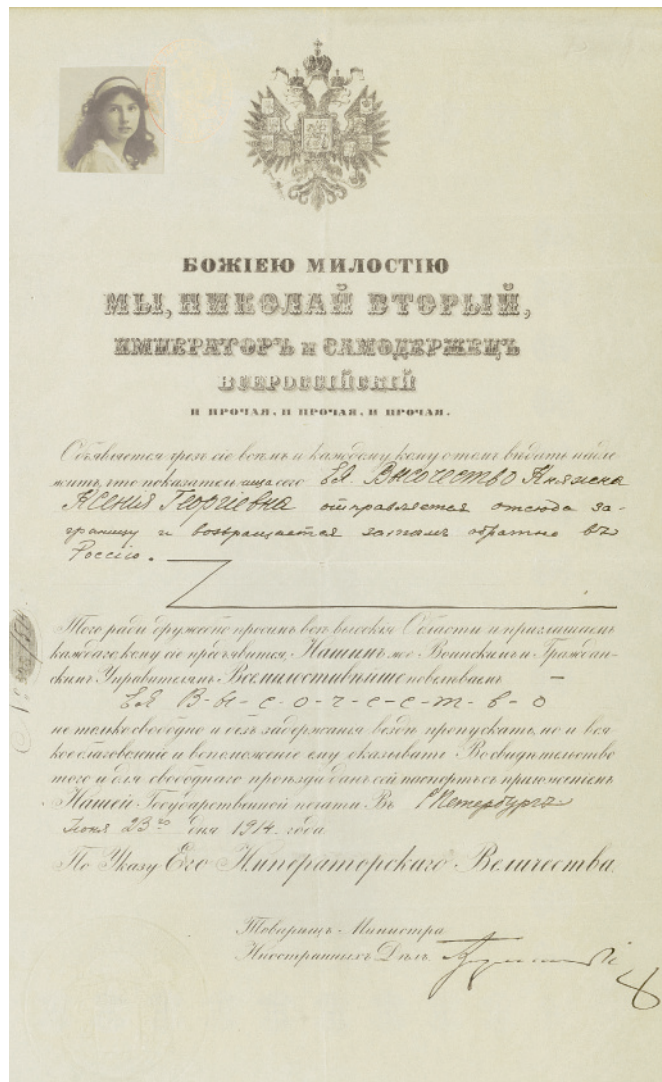 БОЖІЕЮ МИЛОСТІЮ
МЫ, НИКОЛАЙ ВТОРЫЙ,
ИМПЕРАТОРЪ и САМОДЕРЖЕЦЪ
ВСЕРОССІЙСКІЙ
И ПРОЧАЯ, И ПРОЧАЯ, И ПРОЧАЯ.
Объявляется чрезъ сіе всѣмъ и каждому кому о томъ вѣдать надле
житъ, что показательница сего Ея Высочество Княжна
Ксенія Георгіевна отправляется отсюда за-
границу и возвращается затѣмъ обратно въ
Россію.
Того ради дружебно просимъ всѣ высокія Области и приглашаемъ
каждаго, кому сіе предъявится, Нашимъ же Воинскимъ и Граждан-
скимъ Управителямъ Всемилостивѣйше повелѣваемъ
Ея В-ы-с-о-ч-е-с-т-в-о
не только свободно и безъ задержанія вездѣ пропускать, но и вся
кое благоволеніе и вспоможеніе ему оказывать. Во свидѣтельство
того и для свободнаго проѣзда данъ сей паспортъ съ приложеніемъ
Нашей Государственной печати Въ С Петербургѣ
Іюня 23го дня 1914. года.
По Указу Его Императорскаго Величества.
Товарищъ Министра
Иностранныхъ Дѣлъ